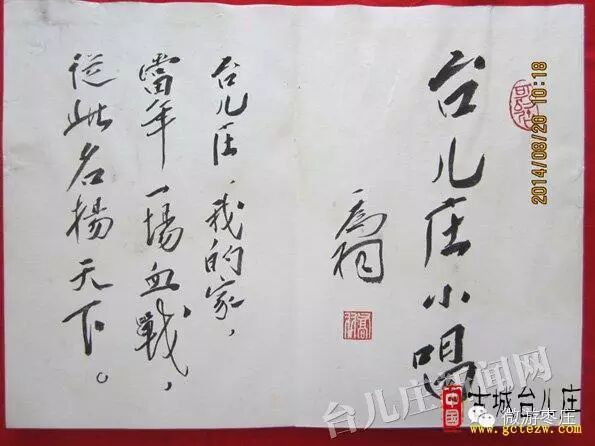 台儿庄小唱
台儿庄，我的家，
當年一場血戰，
從此名揚天下。
2014/08/20 10:18
台儿庄新闻网
中國
古城台儿庄
微游枣庄
www.gctezw.com